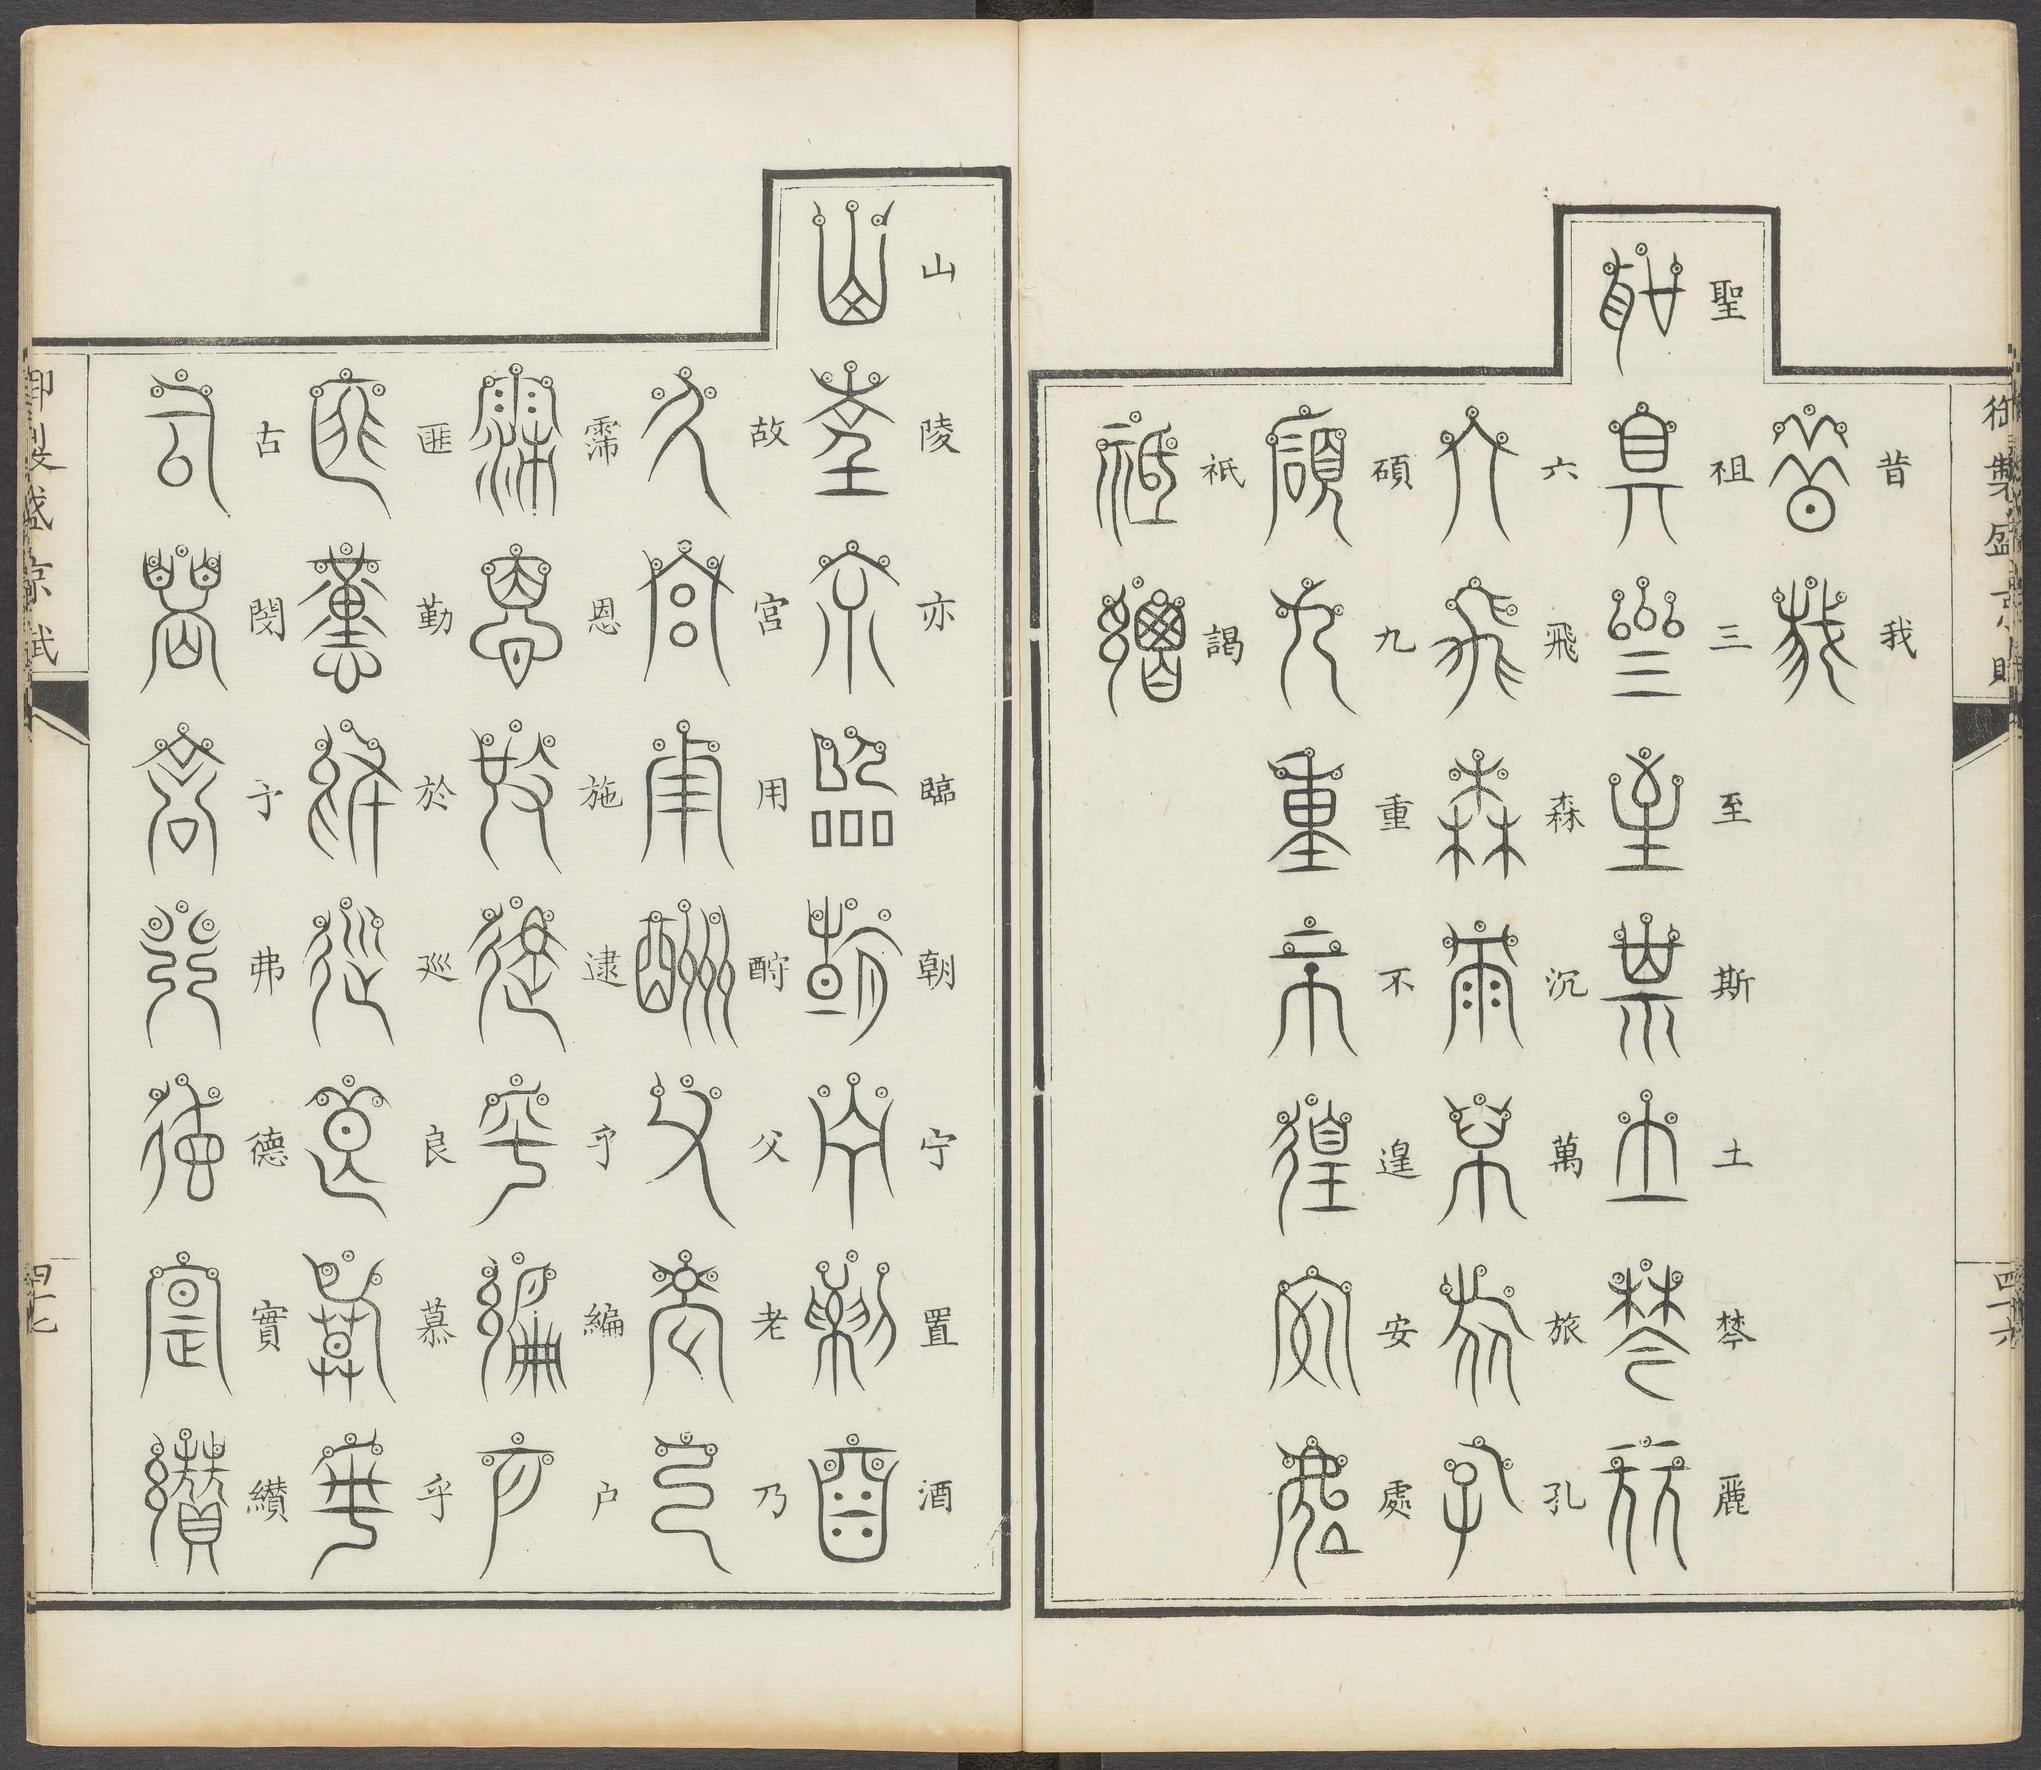 御製盛京賦
四十六
昔我
聖祖三至斯土棽麗
六飛森沉萬旅孔
碩九重不遑安處
祇謁
山陵亦臨朝宁置酒
故宮用酧父老乃
霈恩施逮乎編户
匪勤於廵良慕乎
古閔予弗德實纘
御製盛京賦
四十七